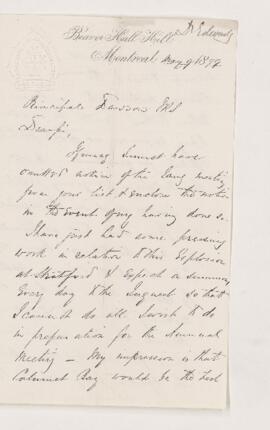 Dr Edwards
Beaver Hall Hill
Montreal, May 9 1879
Principal Dawson FRS
Dear Sir,
I must have
omitted notice of the meeting
from your list & enclose the notice
in the event of my having done so.
I have just had some pressing
work in relation to this Explosion
at Stratford & expect a summons
every day to the Inquest so that
I cannot do all I wish to do
in preparation for the Annual
Meeting — My impression is that
Calumet Bay would be the best